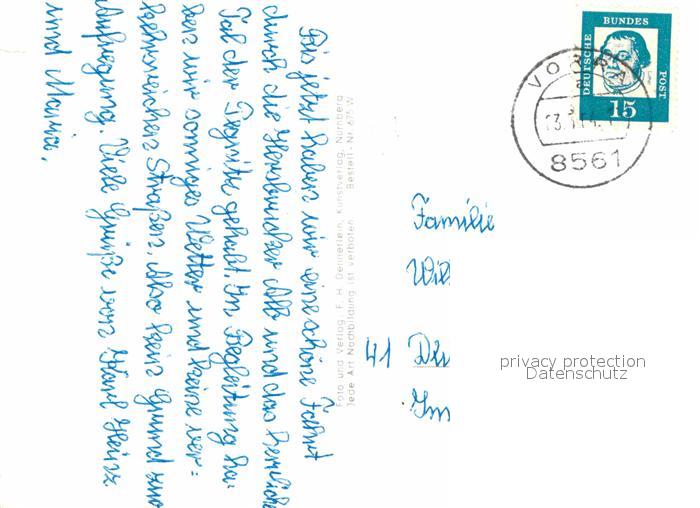 Bis jetzt haben wir eine schöne Fahrt
durch die Hersbrucker Alb und das herrliche
Tal der Pegnitz gehabt. In Begleitung ha-
ben wir sonniges Wetter und keine ver=
kehrsreichen Straßen, also kein Grund zur
Aufregung. Viele Grüße von Karl Heinz
und Maria.
Foto und Verlag: F. H. Dennerlein, Kunstverlag, Nürnberg
Jede Art Nachbildung ist verboten Bestell-Nr. 675 W
DEUTSCHE
BUNDES
POST
15
VORRA
8561
Familie
Wil
41 Du
Im
privacy protection
Datenschutz